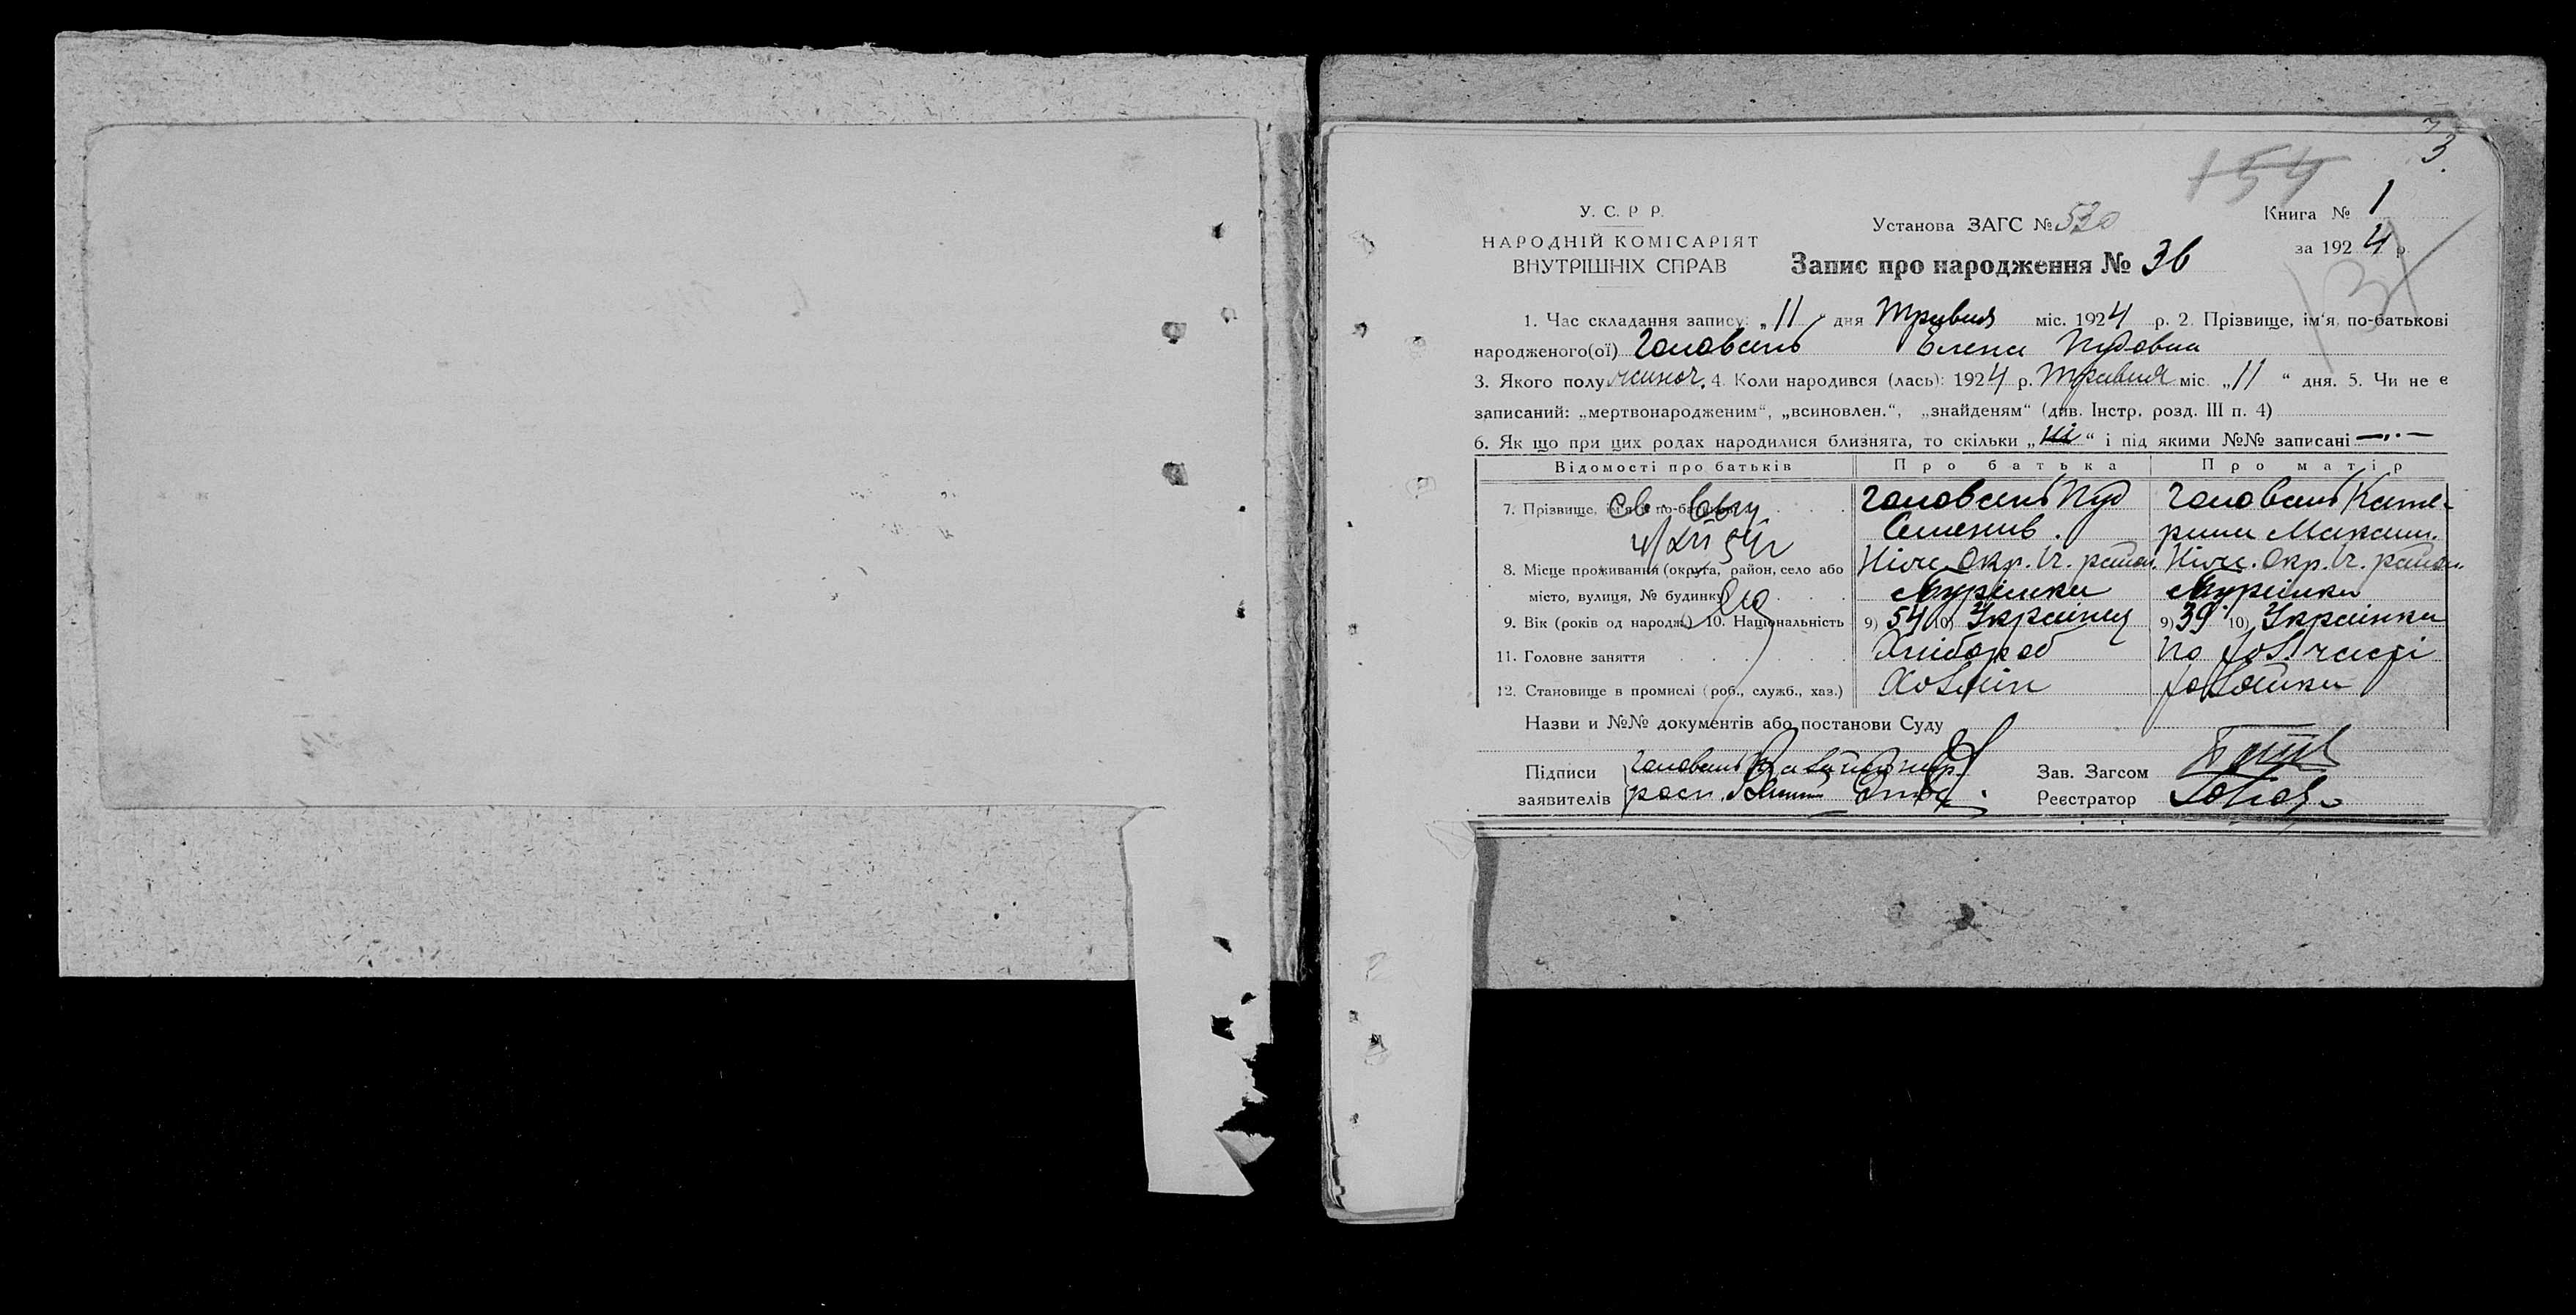 3
154
У. С. Р Р.
НАРОДНІЙ КОМІСАРІЯТ
ВНУТРІШНІХ СПРАВ
Установа ЗАГС № 530
Книга № 1
за 1924 р.
Запис про народження № 36
1. Час складання запису: „11" дня Травня міс. 1924 р. 2. Прізвище, ім'я, по-батькові
народженого(ої) Головань Елена Пудовна
3. Якого полу жиноч. 4. Коли народився (лась): 1924 р. Травня міс. „11" дня. 5. Чи не є
записаний: „мертвонародженим", „всиновлен.", „знайденям" (див. Інстр. розд. III п. 4)
6. Як що при цих родах народилися близнята, то скільки „ні" і під якими №№ записані —„—
Відомості про батьків Про батька Про матір
7. Прізвище, ім'я, по-батькові Головань Пуд Головань Кате-
Семенив. рина Максим.
8. Місце проживання (округа, район, село або Ніжи. Окр. Іч. район. Ніжи. Окр. Іч. район.
місто, вулиця, № будинку)
9. Вік (років од народж.) 10. Національність 9) 54 10) Українец 9) 39 10) Українка
11. Головне заняття Хлібороб по хоз. часті
12. Становище в промислі (роб., служб., хаз.) Хозяїн хозяйка
Назви и №№ документів або постанови Суду
Підписи Головань
заявителів расп.
Зав. Загсом
Реєстратор